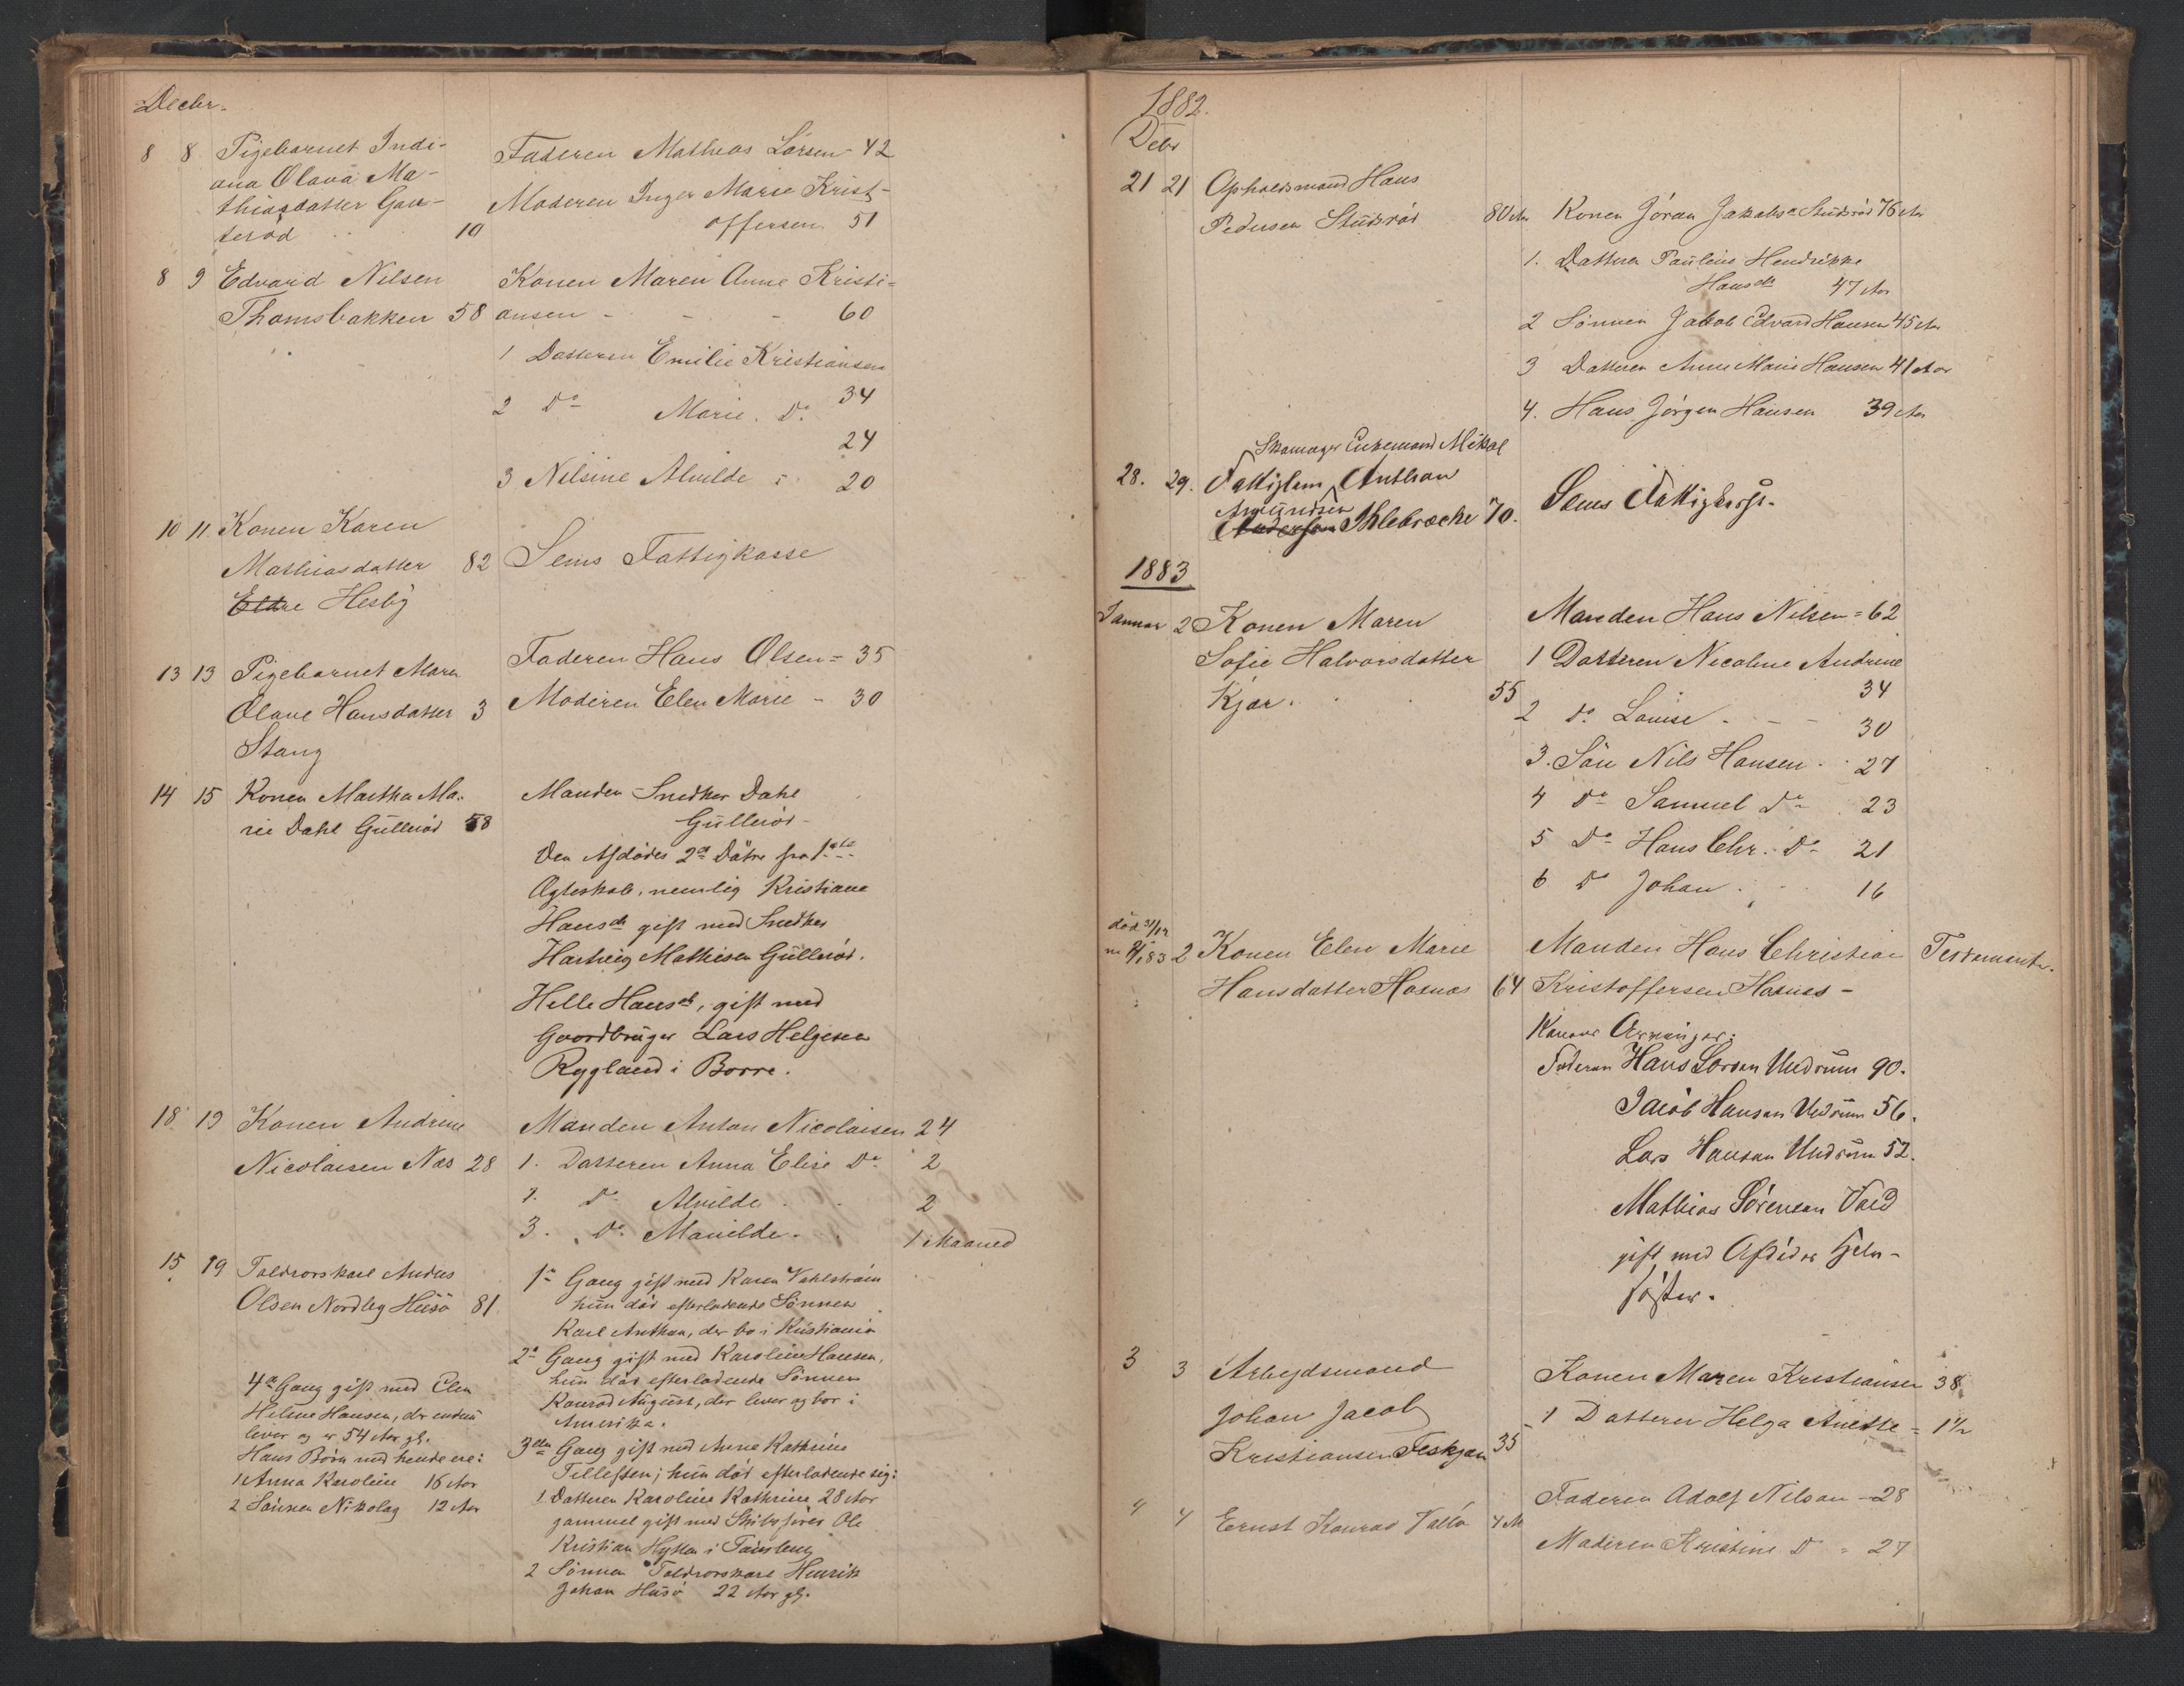 Decbr.
8 8 Pigebarnet Indi-
ana Olava Ma-
thiasdatter Gau-
terød 10
Faderen Mathias Larsen - 42
Moderen Inger Marie Krist-
offersen 51
8 9 Edvard Nilsen
Thomsbakken 58
Konen Maren Anne Kristi-
ansen - - - 60
1 Datteren Emilie Kristiansen
34
2 Do Marie Do
24
3 Nilsine Alvilde 20
10 11 Konen Karen
Mathiasdatter 82
Eldre Hesby
Sems Fattigkasse
13 13 Pigebarnet Maren
Olave Hansdatter 3
Stang
Faderen Hans Olsen = 35
Moderen Elen Marie - 30
14 15 Konen Martha Ma-
rie Dahl Gullerød 58
Manden Snedker Dahl
Gullerød -
Den Afdødes 2de Døtre fra 1ste
Ægteskab, nemlig Kristiane
Hansdr gift med Snedker
Hartvig Mathisen Gullerød.
Helle Hansdr, gift med
Gaardbruger Lars Helgesen
Rygland i Borre.
18 19 Konen Andrine
Nicolaisen Næs 28
Manden Anton Nicolaisen 24
1. Datteren Anna Elise Do 2
2. Do Alvilde 2
3. Do Manilde 1 Maaned
15 19 Toldrorskarl Anders
Olsen Nordby Husø 81
1e Gang gift med Karen Vahlstrøm
hun død efterladende Sønnen
Karl Anthon, der bo i Kristiania
2e Gang gift med Karoline Hansen,
hun død efterladende Sønnen
Konrad August, der lever og bor i
Amerika.
3die Gang gift med Anne Kathrine
Tillefsen; hun død efterladende sig:
1 Datteren Karoline Kathrine 28 Aar
gammel gift med Skibsfører Ole
Kristian Hytten i Tønsberg
2 Sønnen Toldrorskarl Henrik
Johan Husø 22 Aar gl.
4e Gang gift med Elen
Heline Hansen, der endnu
lever og er 54 Aar gl.
Hans Børn med hende ere:
1 Anna Karoline 16 Aar
2 Sønnen Nikolay 12 Aar
1882.
Debr
21 21 Opholdsmand Hans
Pedersen Stubsrød 80 Ar
Konen Jøran Jakobsdr Stubsrød 76 Ar
1. Datteren Pauline Hendrikke
Hansdr 47 Ar
2 Sønnen Jakob Edvard Hansen 45 Ar
3 Datteren Anne Marie Hansen 41 Aar
4. Hans Jørgen Hansen 39 Ar
Skomager Enkemand Mikal
28. 29. Fattiglem Anthon
Amundsen
Andersen Melebræche 70.
Sems Fattigkasse.
1883
Januar 2 Konen Maren
Sofie Halvorsdatter
Kjær. 55
Manden Hans Nilsen = 62
1 Datteren Nicoline Andrine
34
2 Do Louise - - - 30
3. Søn Nils Hansen 27
4 Do Samuel Do 23
5 Do Hans Chr. Do 21
6 Do Johan 16
død 31/12
2 Konen Elen Marie
Hansdatter Hasnæs 64
Manden Hans Christian
Kristoffersen Hasnæs -
Testament.
Konens Arvinger:
Faderen Hans Larsen Undrum 90.
Jacob Hansen Undrum 56.
Lars Hansen Undrum 52.
Mathias Sørensen Vold
gift med Afdødes Hel-
søster.
3 3 Arbejdsmand
Johan Jacob
Kristiansen Feskjær 35
Konen Maren Kristiansen 38
1 Datteren Helga Anette = 1 1/2
4 4 Ernst Konrad Vallø 4 M
Faderen Adolf Nilsen - 28
Moderen Kristine Do = 27